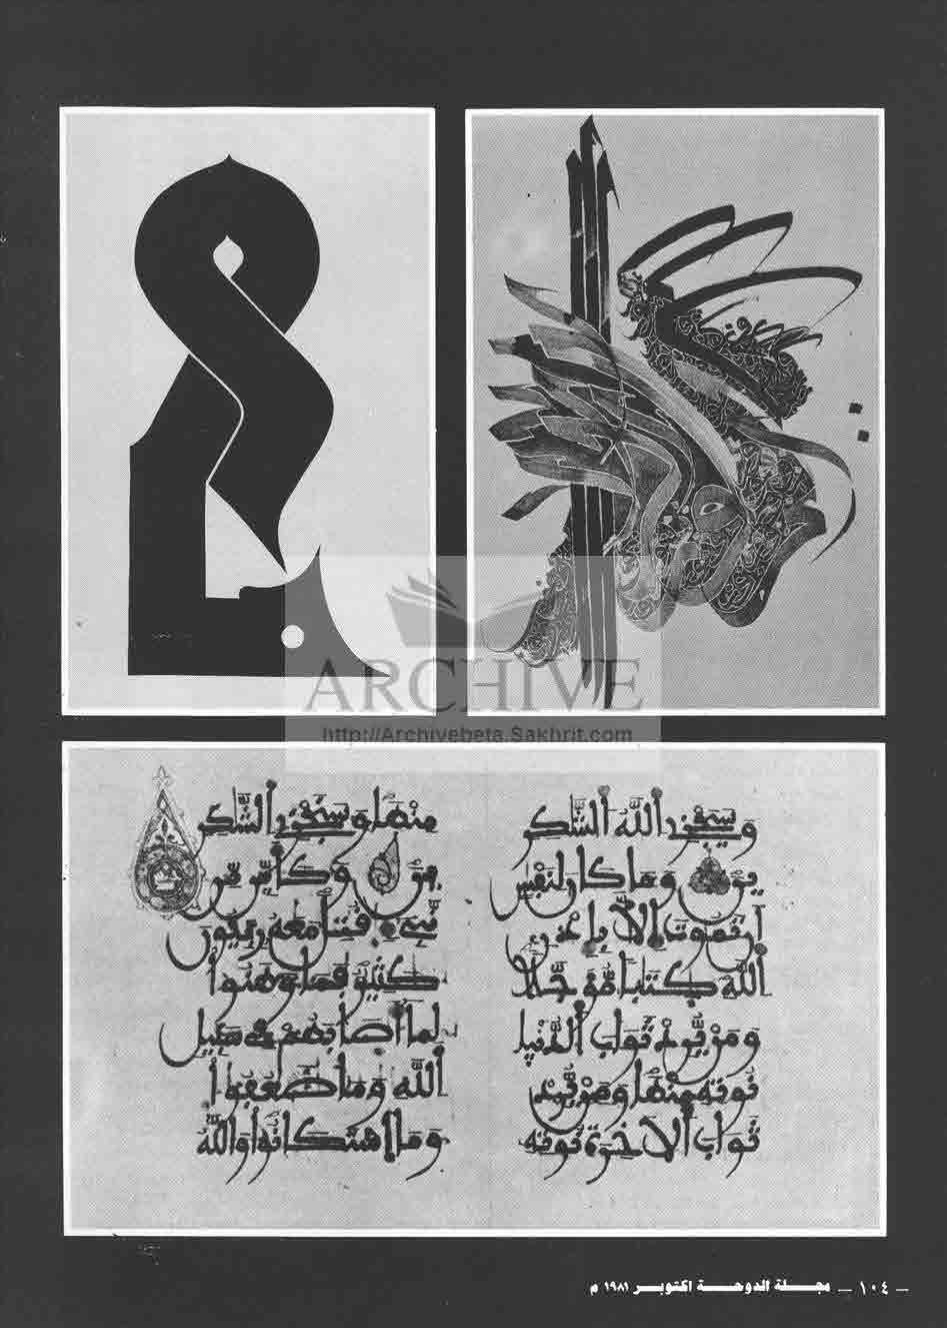 ARCHIVE
http://Archivebeta.Sakhrit.com
وَسَيَجْزِى اللَّهُ الشَّكِرِ
ينَ وَمَا كَانَ لِنَفْسٍ
أَن تَمُوتَ إِلَّا بِإِذْنِ
اللَّهِ كِتَبًا مُّؤَجَّلًا
وَمَن يُرِدْ ثَوَابَ الدُّنْيَا
نُوتِهِ مِنْهَا وَمَن يُرِدْ
ثَوَابَ الْأَخِرَةِ نُوتِهِ
مِنْهَا وَسَنَجْزِى الشَّكِرِ
ينَ وَكَأَيِّن مِّن
نَّبِىٍّ قُتِلَ مَعَهُ رِبِّيُّونَ
كَثِيرٌ فَمَا وَهَنُوا
لِمَا أَصَابَهُمْ فِى سَبِيلِ
اللَّهِ وَمَا ضَعُفُوا
وَمَا اسْتَكَانُوا وَاللَّهُ
– ١٠٤ – مجلة الدوحة اكتوبر ١٩٨١ م